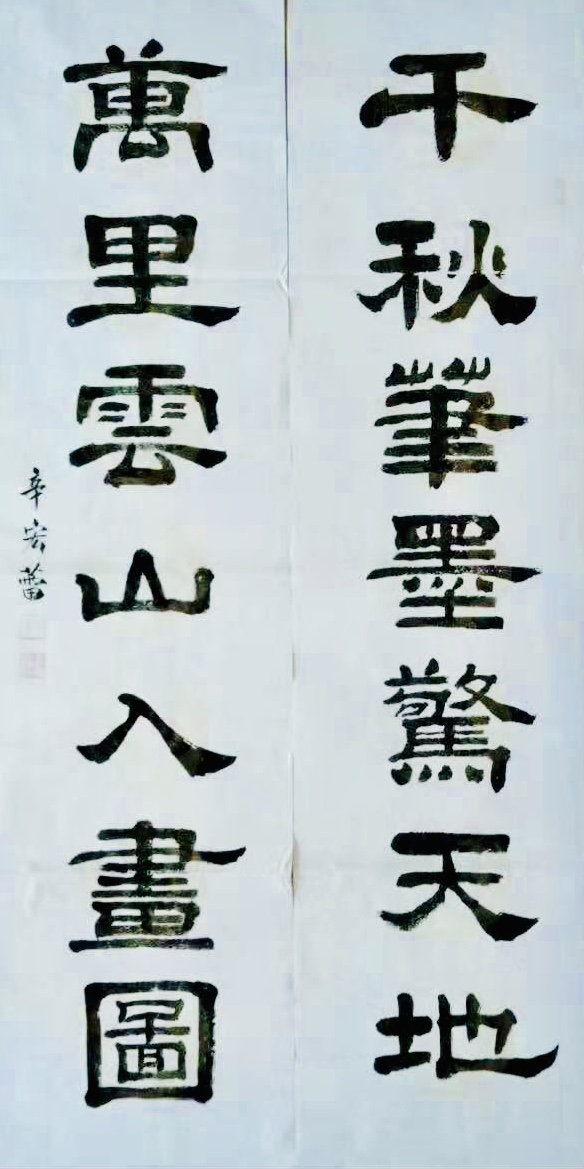 千秋筆墨驚天地
萬里雲山入畫圖
辛宏蕾